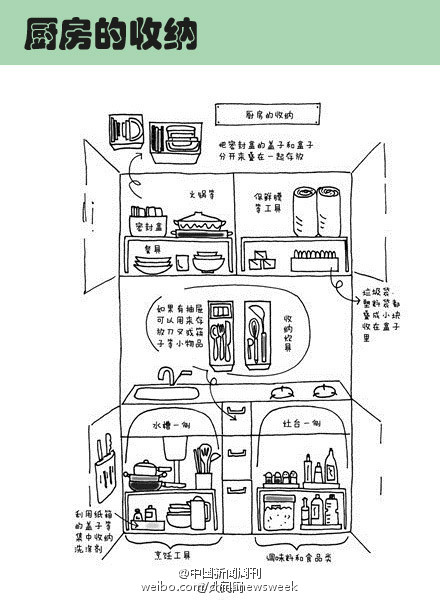 厨房的收纳
厨房的收纳
把密封盒的盖子和盒子
分开来叠在一起存放
火锅等
保鲜膜
等工具
密封盒
餐具
垃圾袋·
塑料袋都
叠成小块
收在盒子
里
如果有抽屉
可以用来存
放刀叉或筷
子等小物品
收纳炊具
水槽一侧
灶台一侧
利用纸箱
的盖子等
集中收纳
洗涤剂
烹饪工具
调味料和食品类
@中国新闻周刊
weibo.com/chinanewsweek